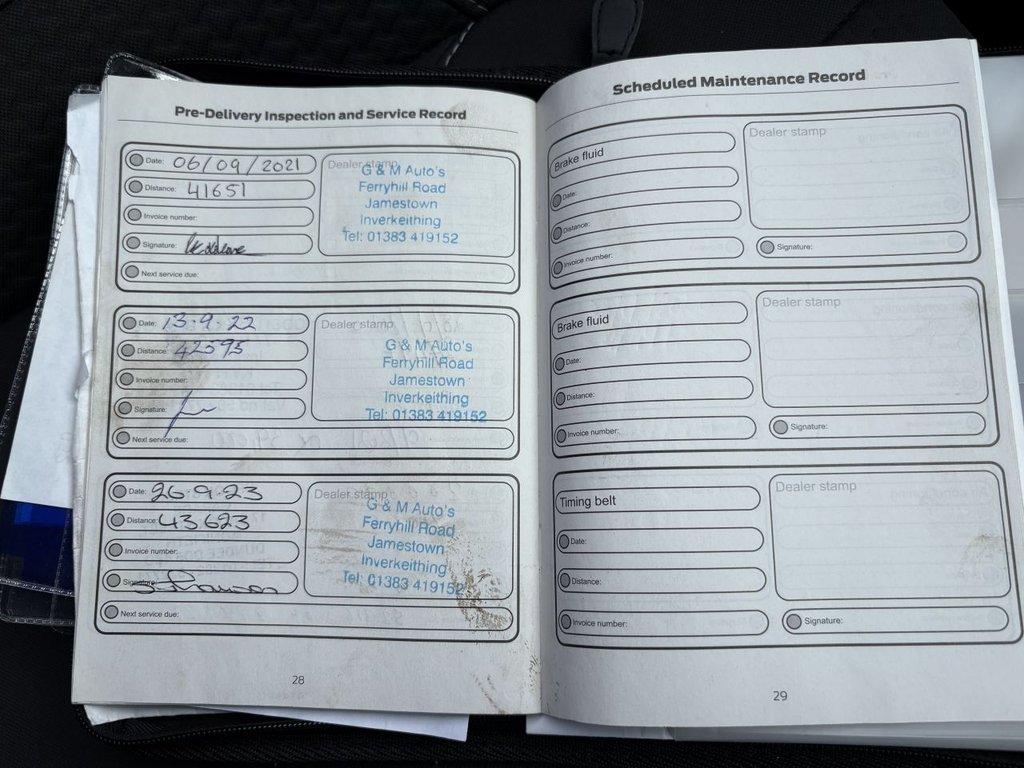 Pre-Delivery Inspection and Service Record
Date: 06/09/2021
Distance: 41651
Invoice number:
Signature:
Next service due:
Dealer stamp
G & M Auto's
Ferryhill Road
Jamestown
Inverkeithing
Tel: 01383 419152
Date: 13.9.22
Distance: 42595
Invoice number:
Signature:
Next service due:
Dealer stamp
G & M Auto's
Ferryhill Road
Jamestown
Inverkeithing
Tel: 01383 419152
Date: 26.9.23
Distance: 43623
Invoice number:
Signature:
Next service due:
Dealer stamp
G & M Auto's
Ferryhill Road
Jamestown
Inverkeithing
Tel: 01383 419152
28
Scheduled Maintenance Record
Brake fluid
Date:
Distance:
Invoice number:
Dealer stamp
Signature:
Brake fluid
Date:
Distance:
Invoice number:
Dealer stamp
Signature:
Timing belt
Date:
Distance:
Invoice number:
Dealer stamp
Signature:
29